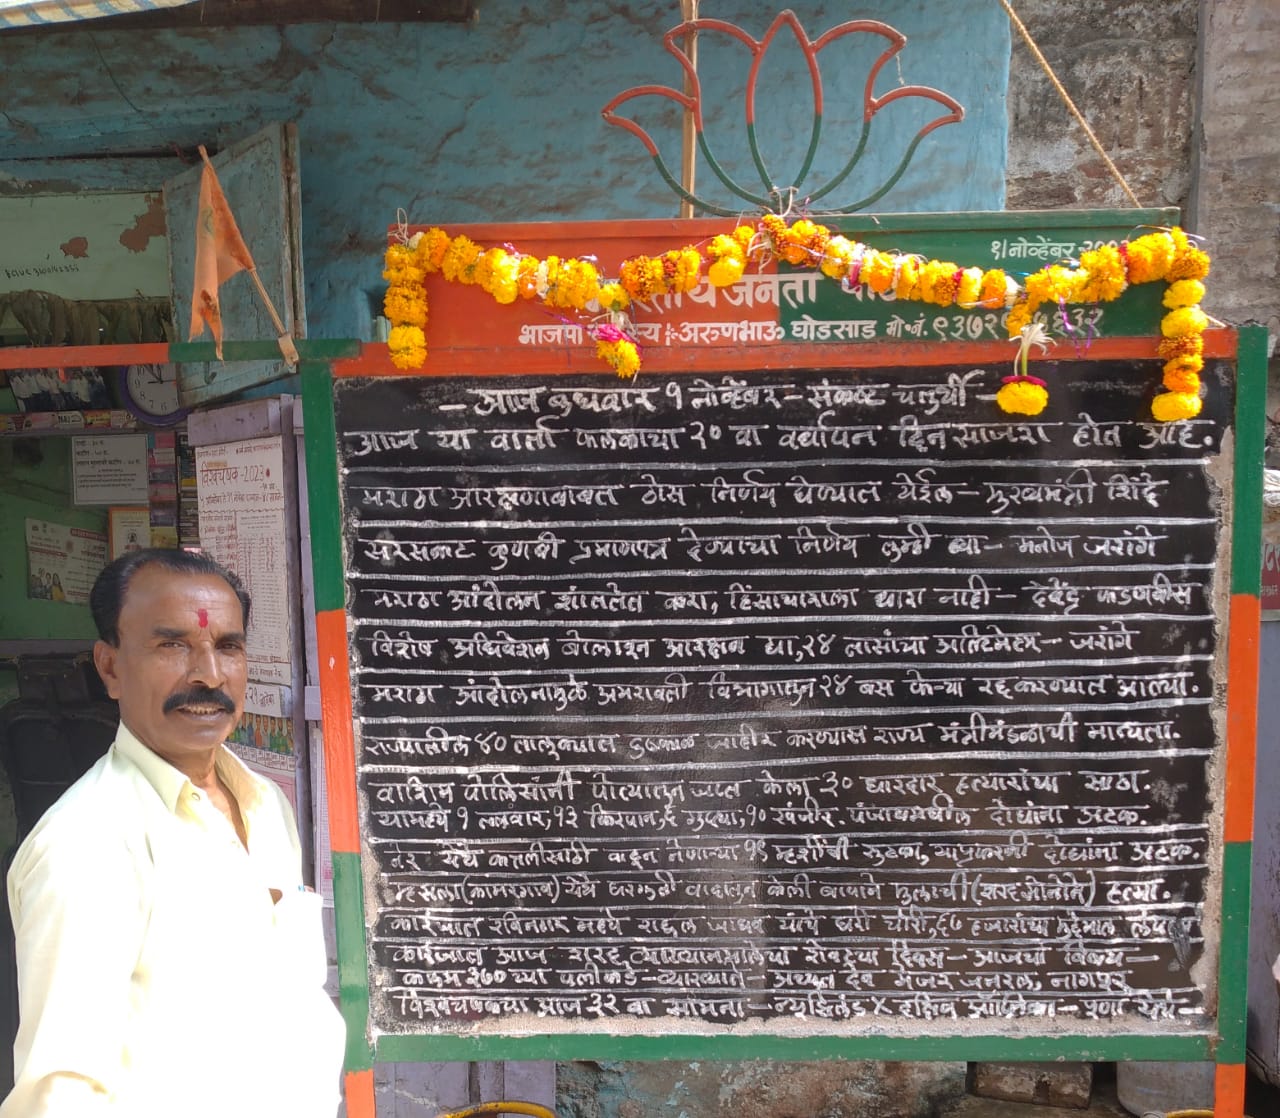 १। नोव्हेंबर
जनता
भाजपा अरुणभाऊ घोडसाड मो.नं.
विश्वचषक-2023
- आज बुधवार १ नोव्हेंबर - संकष्ट चतुर्थी -
आज या वार्ता फलकाचा २० वा वर्धापन दिन साजरा होत आहे.
मराठा आरक्षणाबाबत ठोस निर्णय घेण्यात येईल - मुख्यमंत्री शिंदे
सरसकट कुणबी प्रमाणपत्र देण्याचा निर्णय तुम्ही घ्या - मनोज जरांगे
मराठा आंदोलन शांततेत करा, हिंसाचाराला थारा नाही - देवेंद्र फडणवीस
विशेष अधिवेशन बोलावून आरक्षण द्या, २४ तासांचा अल्टिमेटम - जरांगे
मराठा आंदोलनामुळे अमरावती विभागातून २४ बस फेऱ्या रद्द करण्यात आल्या.
राज्यातील ४० तालुक्यात दुष्काळ जाहीर करण्यास राज्य मंत्रीमंडळाची मान्यता.
वाशिम पोलिसांनी पोत्यातून जप्त केला ३० धारदार हत्यारांचा साठा.
यामध्ये १ तलवार, १३ किरपान, ६ गुप्त्या, १० खंजीर. पंजाबमधील दोघांना अटक.
नेर येथे कत्तलीसाठी वाहून नेणाऱ्या १९ म्हशींची सुटका, याप्रकरणी दोघांना अटक.
म्हसला (कामरगाव) येथे घरगुती वादातून केली बापाने मुलाची (शरद सोनोने) हत्या.
कारंजात रविनगर मध्ये राहुल जाधव यांचे घरी चोरी, ६५ हजारांचा मुद्देमाल लंपास
कारंजात आज शरद व्याख्यानमालेचा शेवटचा दिवस - आजचा विषय -
कलम ३७० च्या पलीकडे - व्याख्याते - अच्युत देव मेजर जनरल, नागपूर
विश्वचषकचा आज ३२ वा सामना - न्यूझिलंड X दक्षिण आफ्रिका - पुणे येथे -